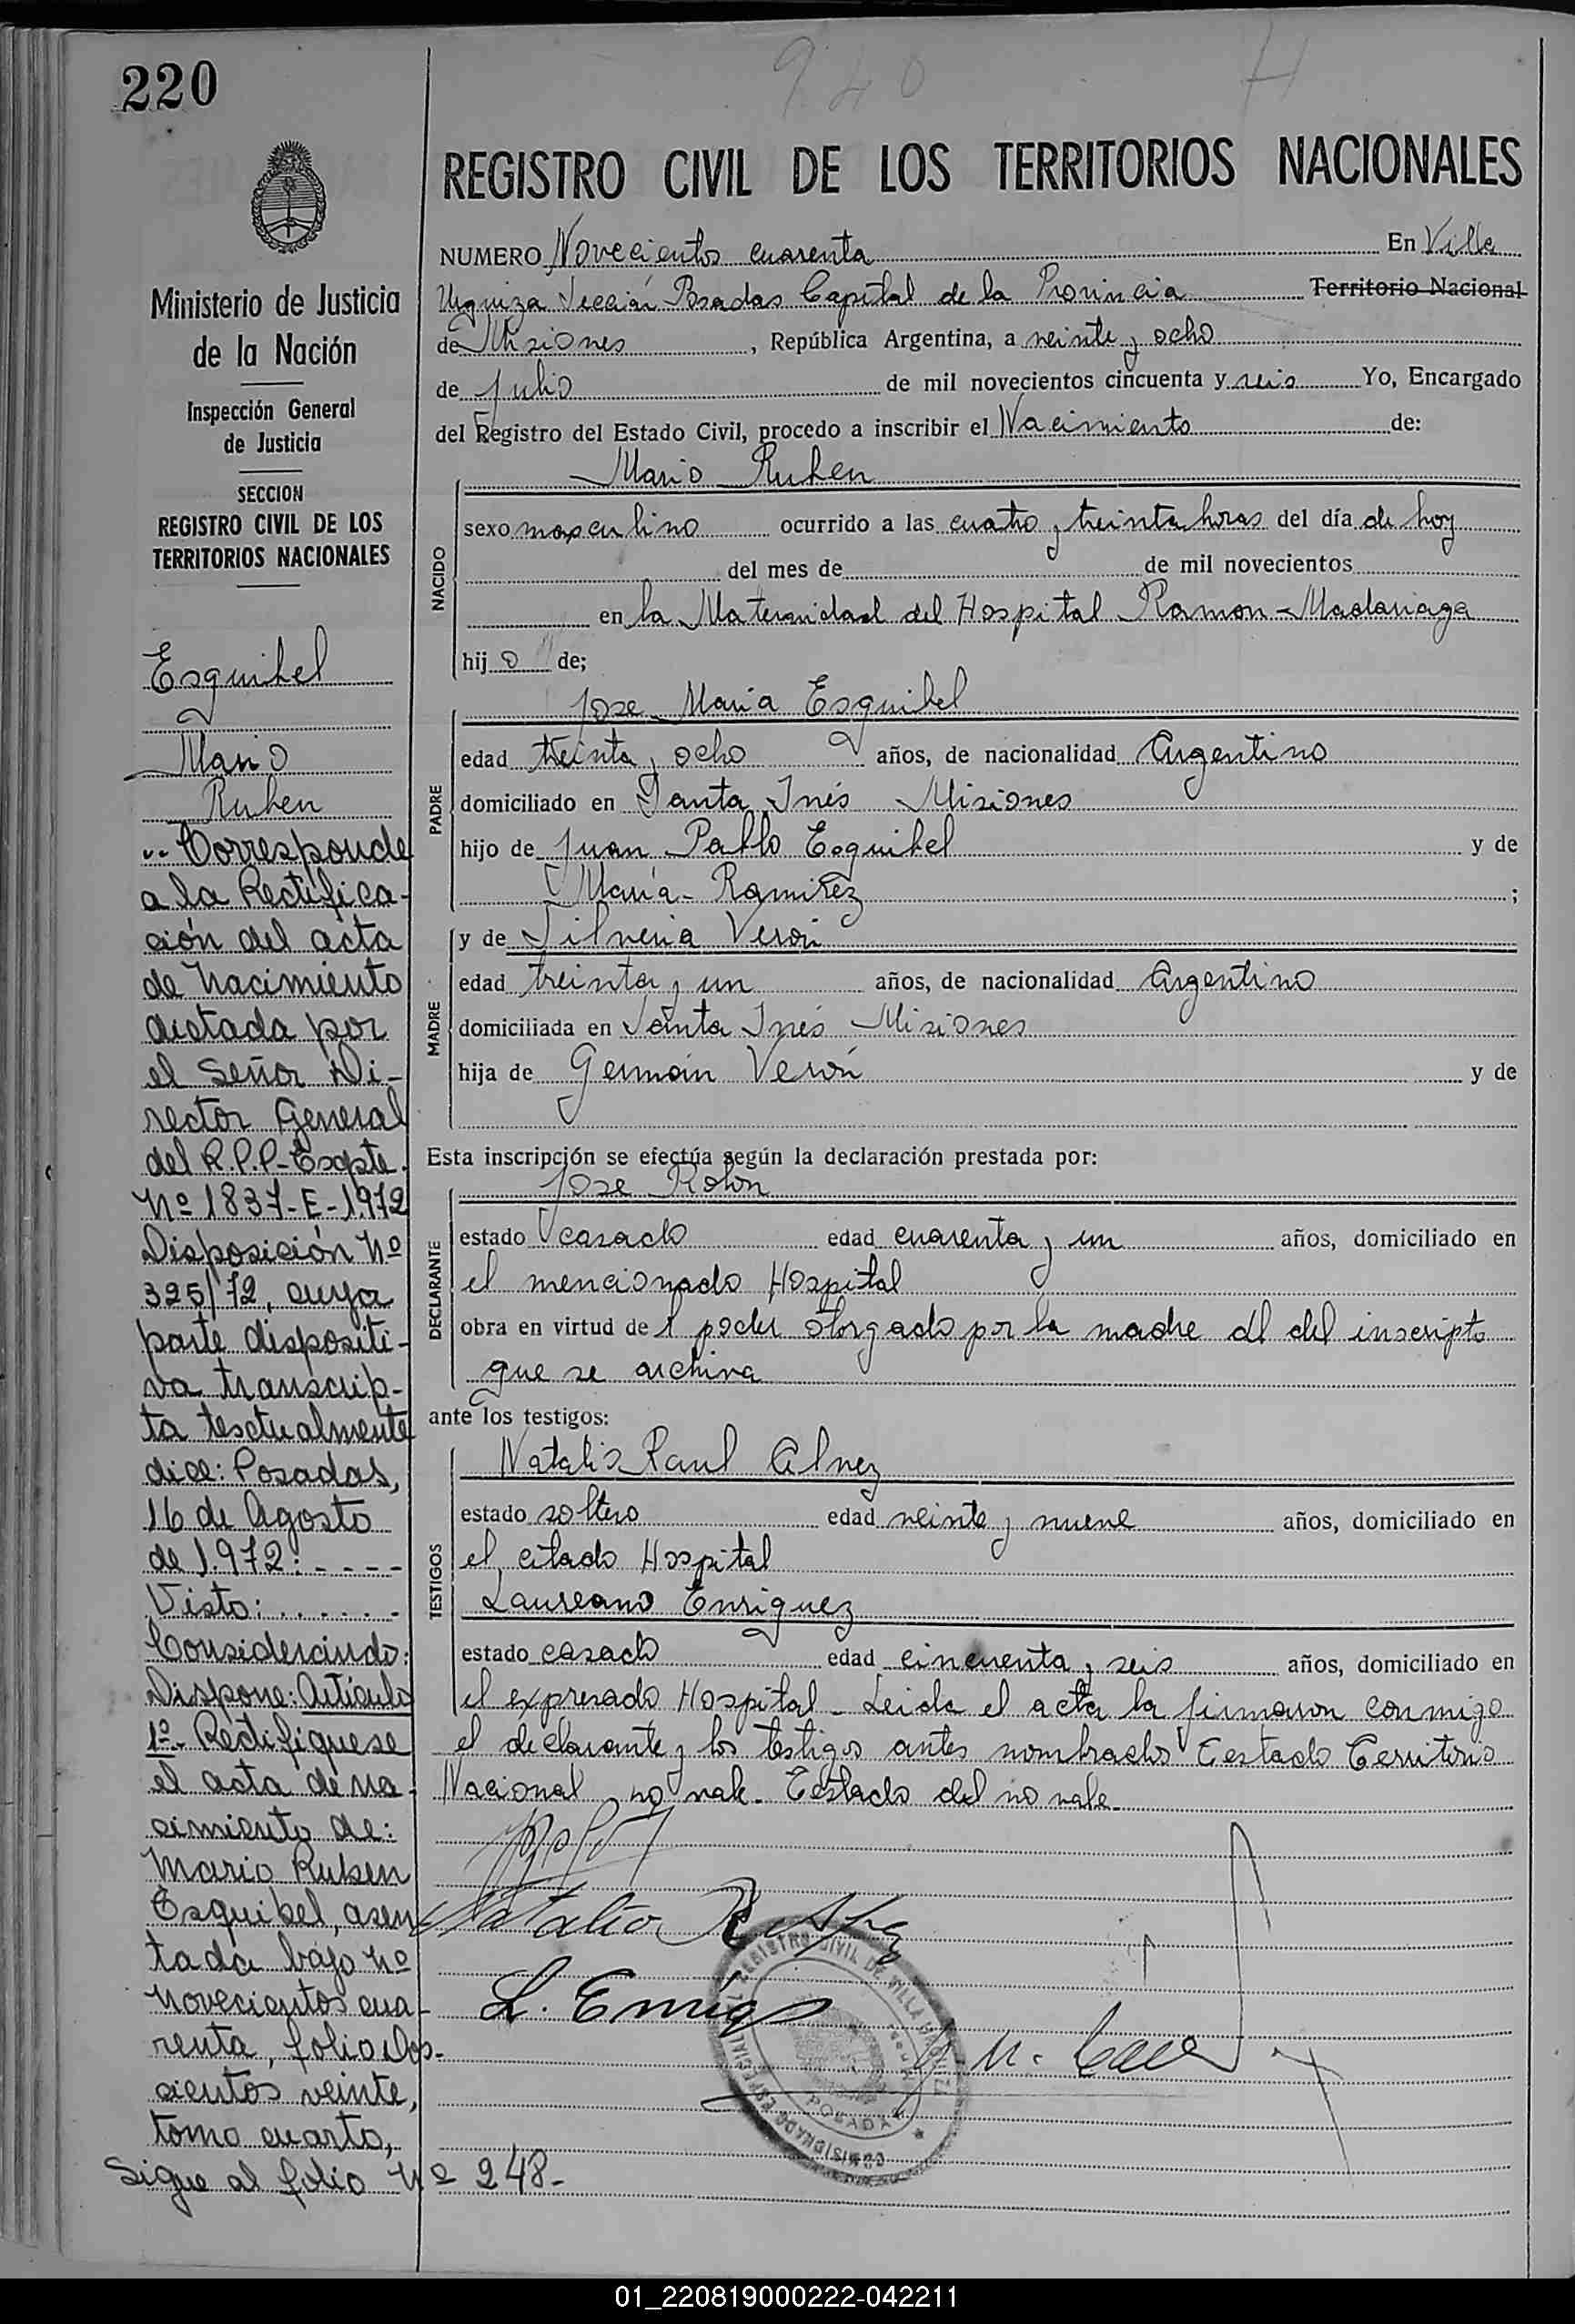 220
940
H
Ministerio de Justicia
de la Nación
Inspección General
de Justicia
SECCION
REGISTRO CIVIL DE LOS
TERRITORIOS NACIONALES
Esquibel
Mario
Ruben
Corresponde
a la Rectifica-
ción del acta
de nacimiento
dictada por
el Señor Di-
rector General
del R.P.P-Expte.
Nº 1837-E-1972
Disposición Nº
325/72, cuya
parte dispositi-
va transcrip-
ta textualmente
dice: Posadas,
16 de Agosto
de 1.972: - - - -
Visto: . . . . . . -
Considerando:
Dispone: Artículo
1º- Rectifíquese
el acta de na-
cimiento de:
Mario Ruben
Esquibel, asen-
tada bajo Nº
novecientos cua-
renta, folio dos-
cientos veinte,
tomo cuarto,
Sigue al folio Nº 248-
REGISTRO CIVIL DE LOS TERRITORIOS NACIONALES
NUMERO Novecientos cuarenta En Villa
Urquiza Sección Posadas Capital de la Provincia Territorio Nacional
de Misiones, República Argentina, a veinte y ocho
de julio de mil novecientos cincuenta y seis Yo, Encargado
del Registro del Estado Civil, procedo a inscribir el Nacimiento de:
Mario Ruben
NACIDO
sexo masculino ocurrido a las cuatro y treinta horas del día de hoy
del mes de de mil novecientos
en la Maternidad del Hospital Ramon Madariaga
hij o de;
Jose Maria Esquibel
PADRE
edad treinta y ocho años, de nacionalidad Argentino
domiciliado en Santa Inés Misiones
hijo de Juan Pablo Esquibel y de
Maria Ramirez ;
y de Silveria Veron
MADRE
edad treinta y un años, de nacionalidad Argentino
domiciliada en Santa Inés Misiones
hija de Germán Verón y de
Esta inscripción se efectúa según la declaración prestada por:
Jose Rolon
DECLARANTE
estado casado edad cuarenta y un años, domiciliado en
el mencionado Hospital
obra en virtud de l poder otorgado por la madre del del inscripto
que se archiva
ante los testigos:
TESTIGOS
Natalio Raul Alvez
estado soltero edad veinte y nueve años, domiciliado en
el citado Hospital
Laureano Enriquez
estado casado edad cincuenta y seis años, domiciliado en
el expresado Hospital - Leida el acta la firmaron conmigo
el declarante y los testigos antes nombrados Testado Territorio
Nacional no vale. Testado del no vale.
Natalio R Alvez
L. Enriq
REGISTRO CIVIL DE VILLA URQUIZA
POSADAS
01_220819000222-042211